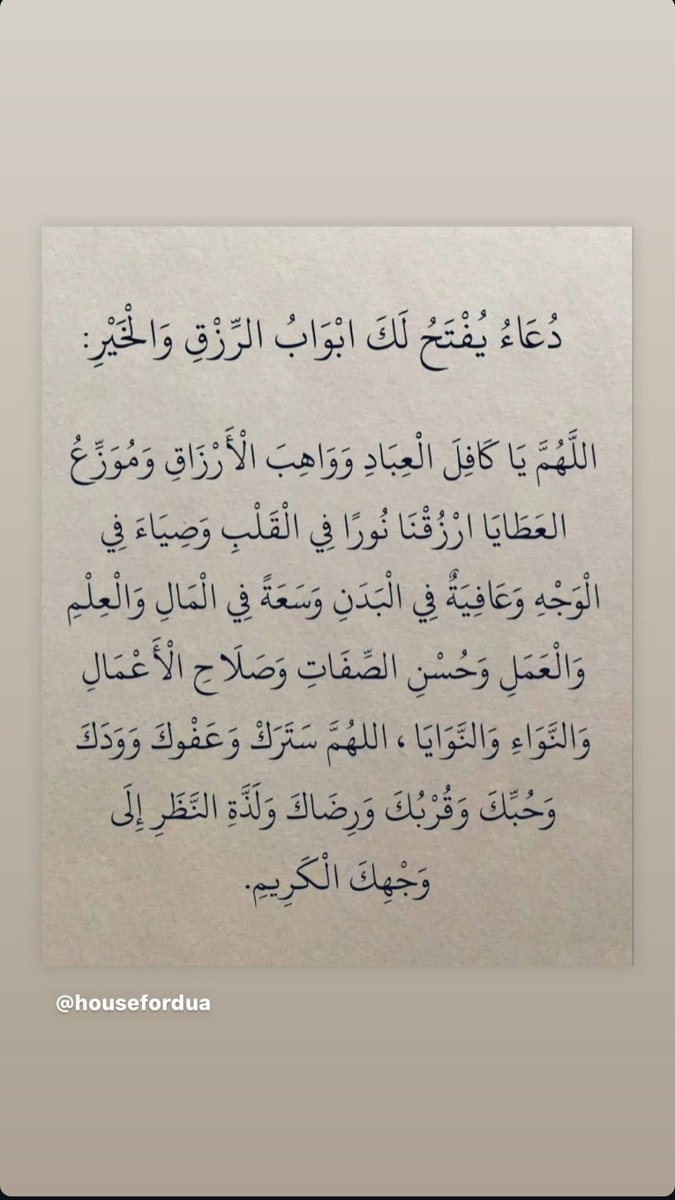 دُعَاءُ يُفْتَحُ لَكَ ابْوَابُ الرِّزْقِ وَالْخَيْرِ:
اللَّهُمَّ يَا كَافِلَ الْعِبَادِ وَوَاهِبَ الْأَرْزَاقِ وَمُوَزِّعُ
العَطَايَا ارْزُقْنَا نُورًا فِي الْقَلْبِ وَضِيَاءَ فِي
الْوَجْهِ وَعَافِيَةٌ فِي الْبَدَنِ وَسَعَةً فِي الْمَالِ وَالْعِلْمِ
وَالْعَمَلِ وَحُسْنِ الصِّفَاتِ وَصَلَاحِ الْأَعْمَالِ
وَالنَّوَاءِ وَالنَّوَايَا ، اللهُمَّ سَتَرَكْ وَعَفْوكَ وَوَدَكَ
وَحُبِّكَ وَقُرْبُكَ وَرِضَاكَ وَلَذَّةِ النَّظَرِ إِلَى
وَجْهِكَ الْكَرِيمِ.
@housefordua